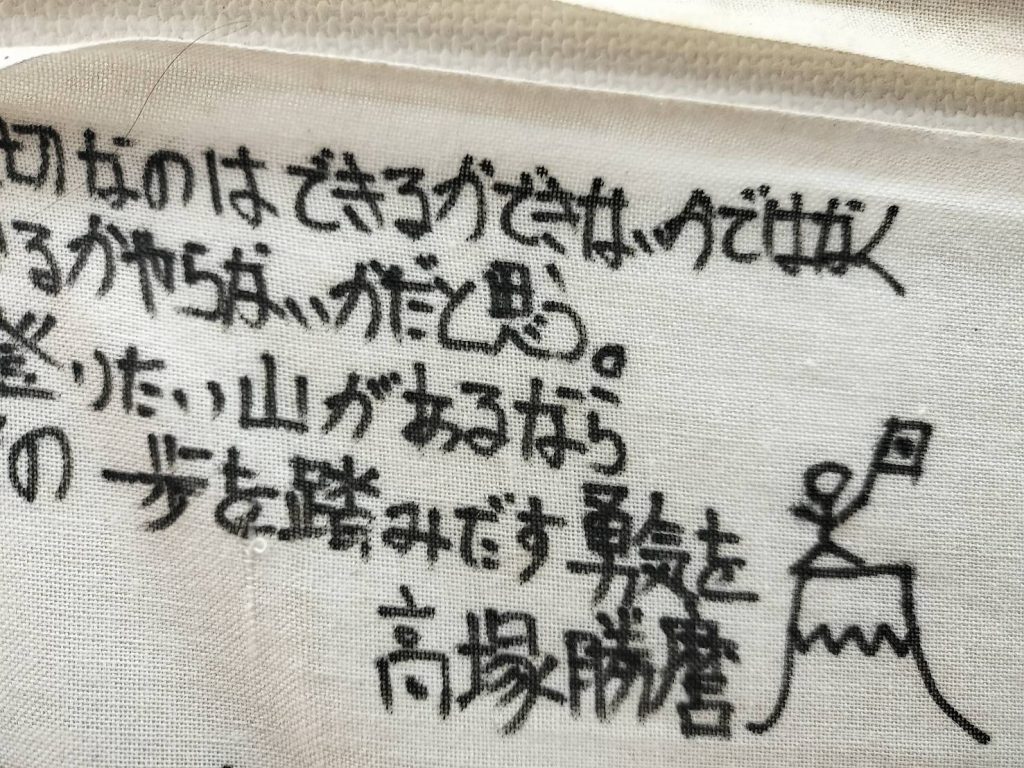 切なのはできるかできないのではなく
るかやらないかだと思う。
登りたい山があるなら
の一歩を踏みだす勇気を
高塚勝麿